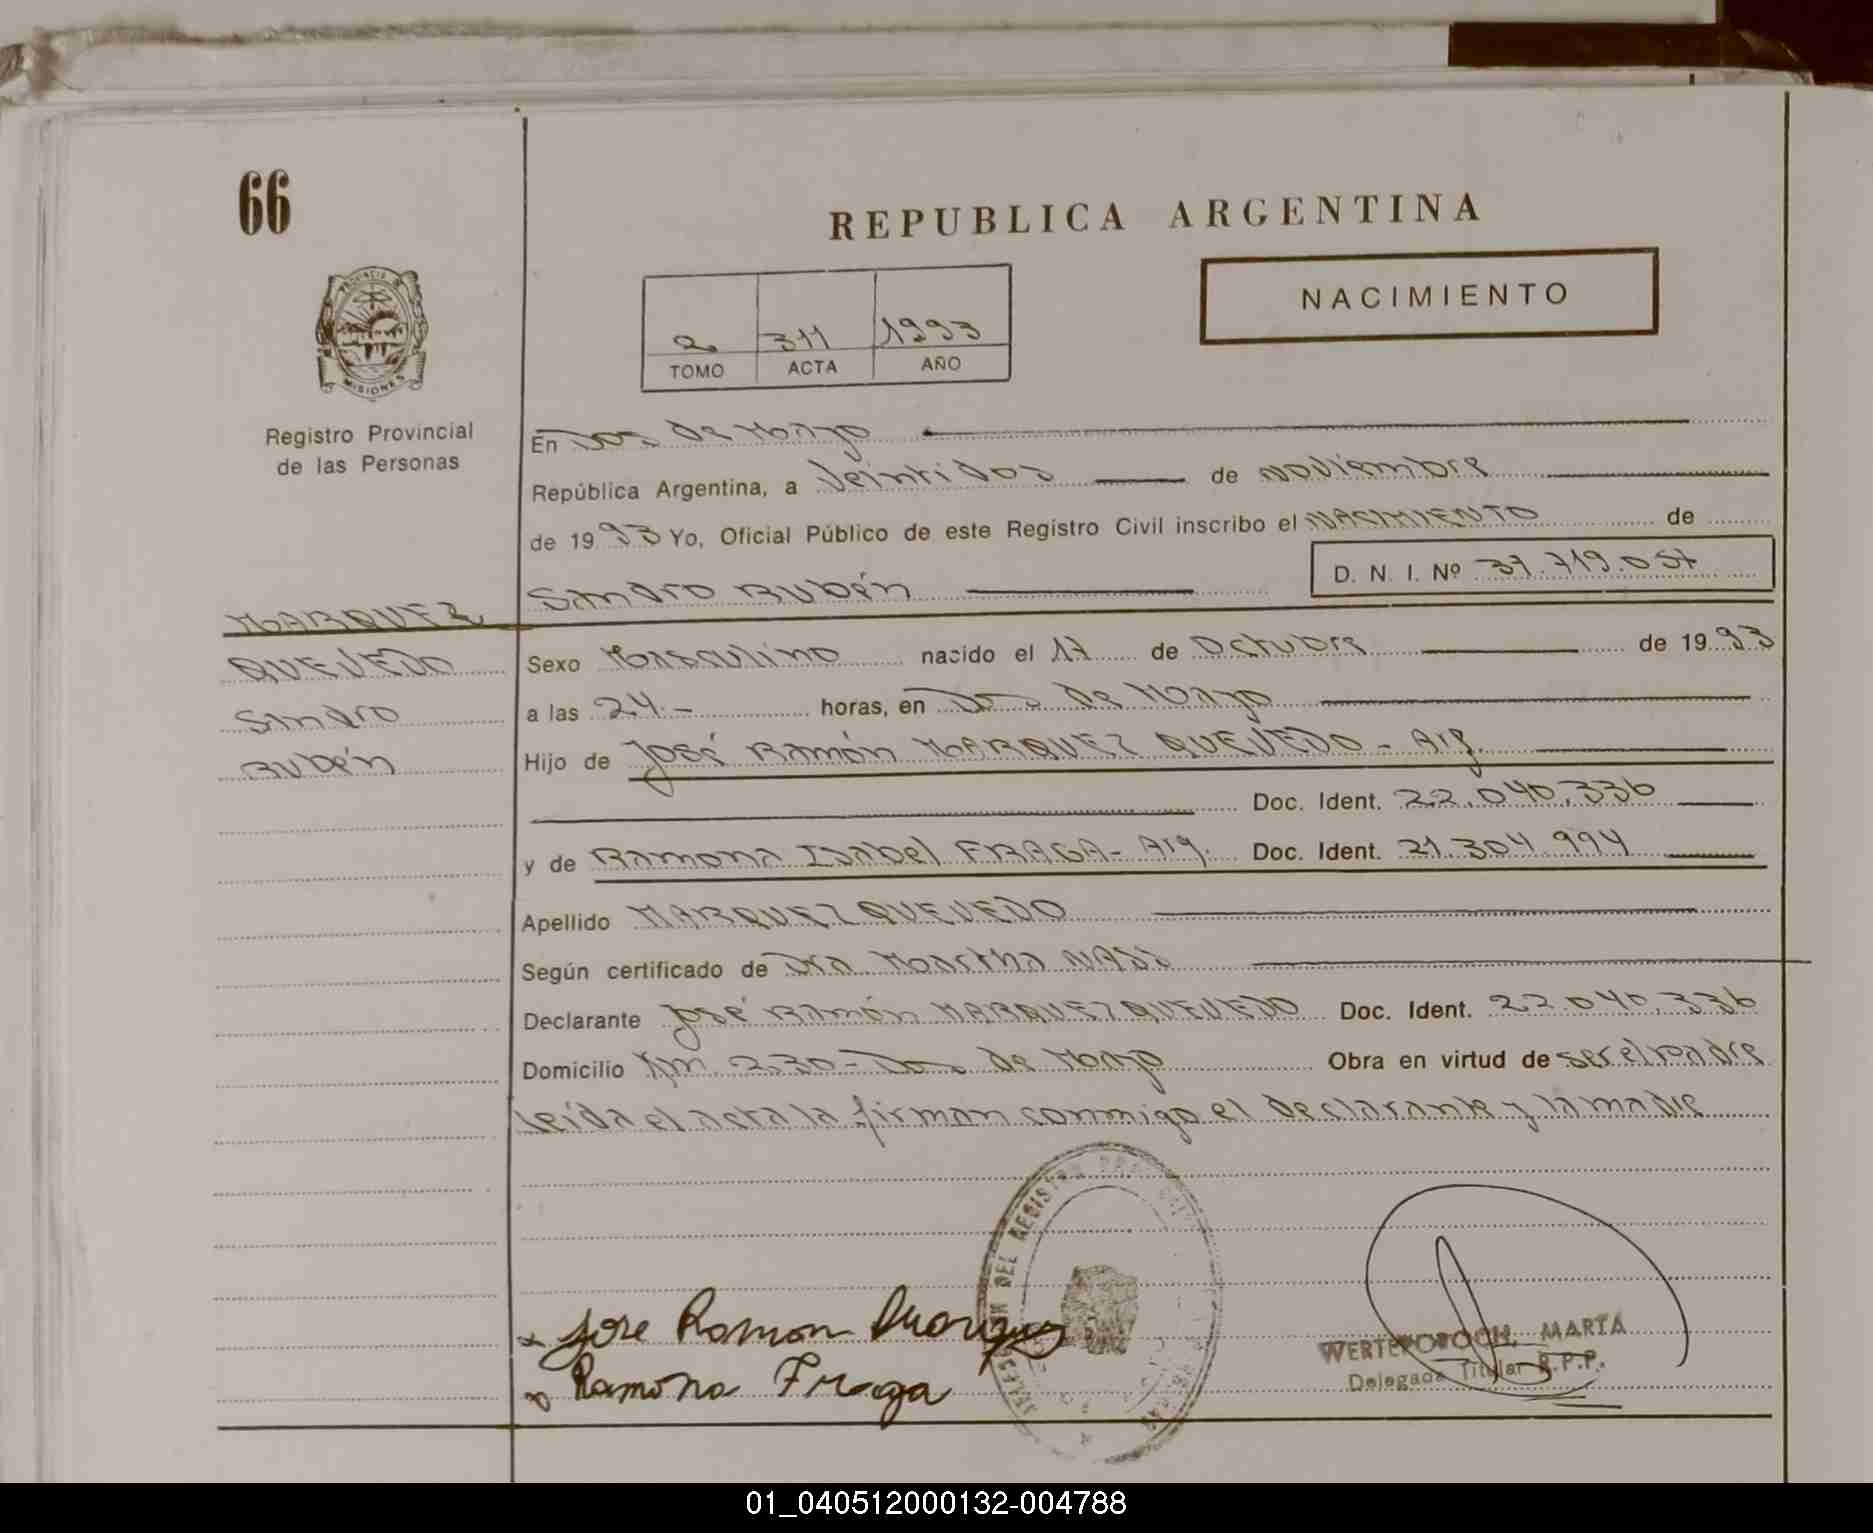 66
REPUBLICA ARGENTINA
NACIMIENTO
PROVINCIA DE
MISIONES
2 311 1993
TOMO ACTA AÑO
Registro Provincial
de las Personas
En Dos de Mayo
República Argentina, a Veintidos de Noviembre
de 1993 Yo, Oficial Público de este Registro Civil inscribo el NACIMIENTO de
D. N. I. Nº 37.719.057
Sandro Rubén
MARQUEZ
QUEVEDO
Sandro
Rubén
Sexo Masculino nacido el 17 de Octubre de 1993
a las 24.- horas, en Dos de Mayo
Hijo de José Ramón MARQUEZ QUEVEDO - Arg.
Doc. Ident. 22.040.336
y de Ramona Isabel FRAGA - Arg. Doc. Ident. 21.304.994
Apellido MARQUEZ QUEVEDO
Según certificado de Dra Martha
Declarante José Ramón MARQUEZ QUEVEDO Doc. Ident. 22.040.336
Domicilio Km. 230 - Dos de Mayo Obra en virtud de ser el padre
leída el acta la firman conmigo el declarante y la madre
DEL REGISTRO
Jose Ramon Marquez
Ramona Fraga
WERTEPOROCH, MARTA
Delegada Titular R.P.P.
01_040512000132-004788